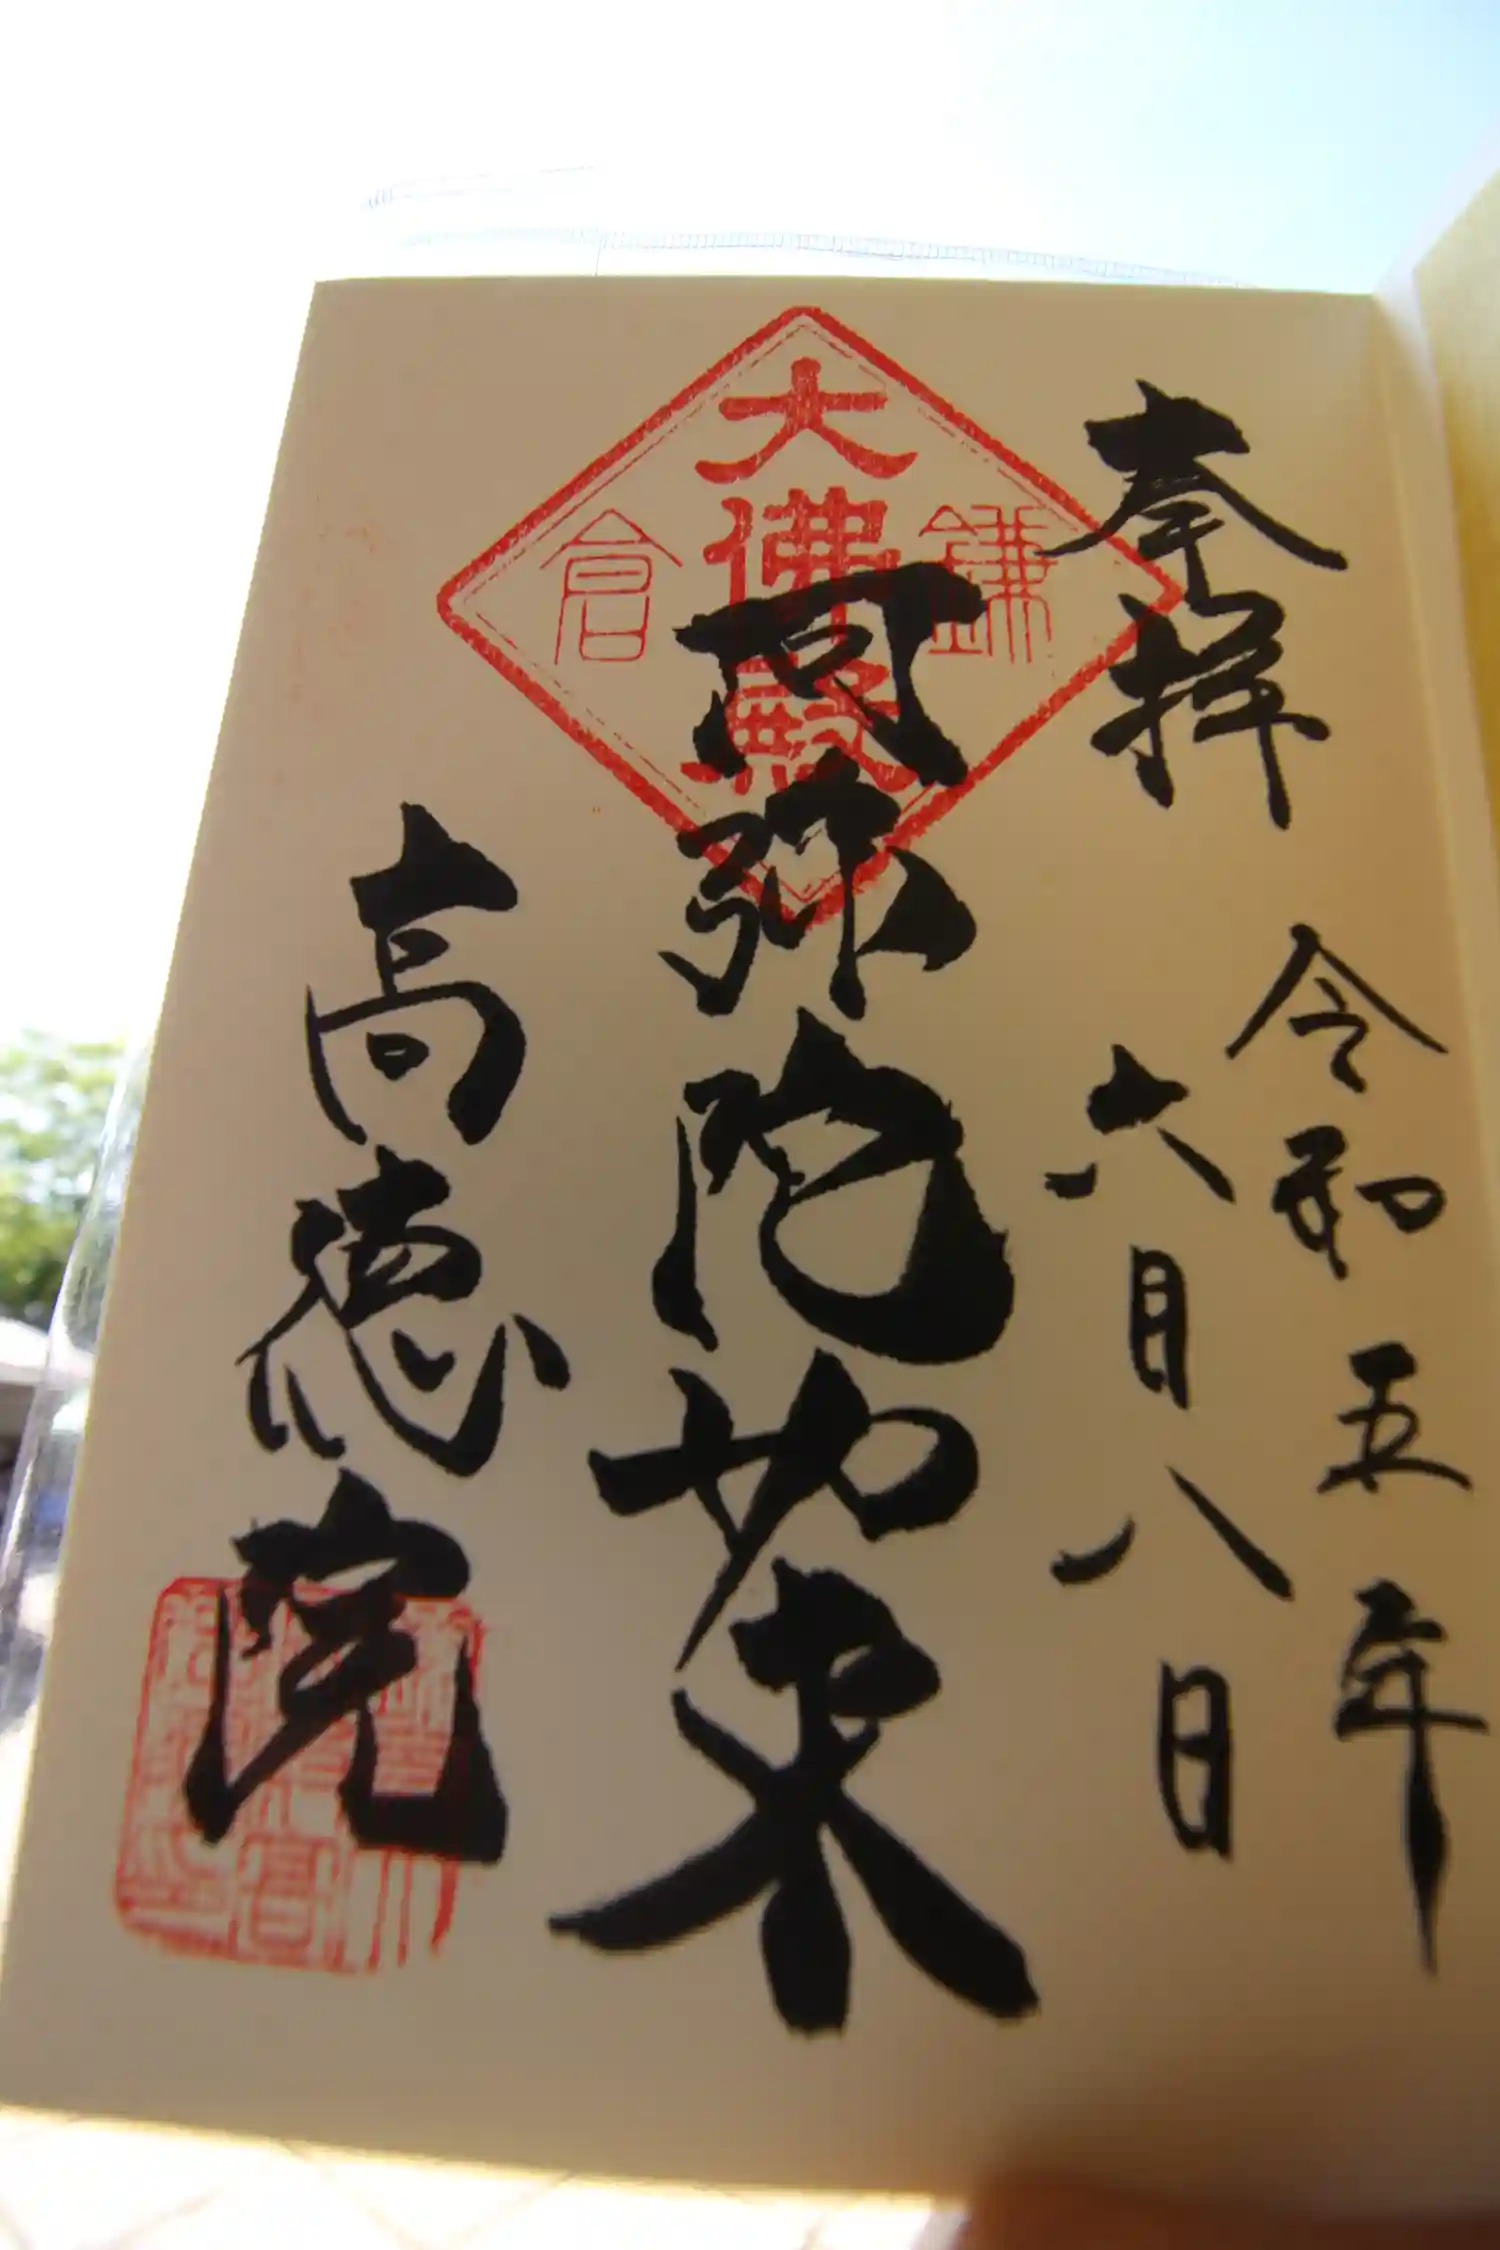 奉拝
令和五年
六月八日
大佛殿
鎌倉
阿弥陀如来
高徳院